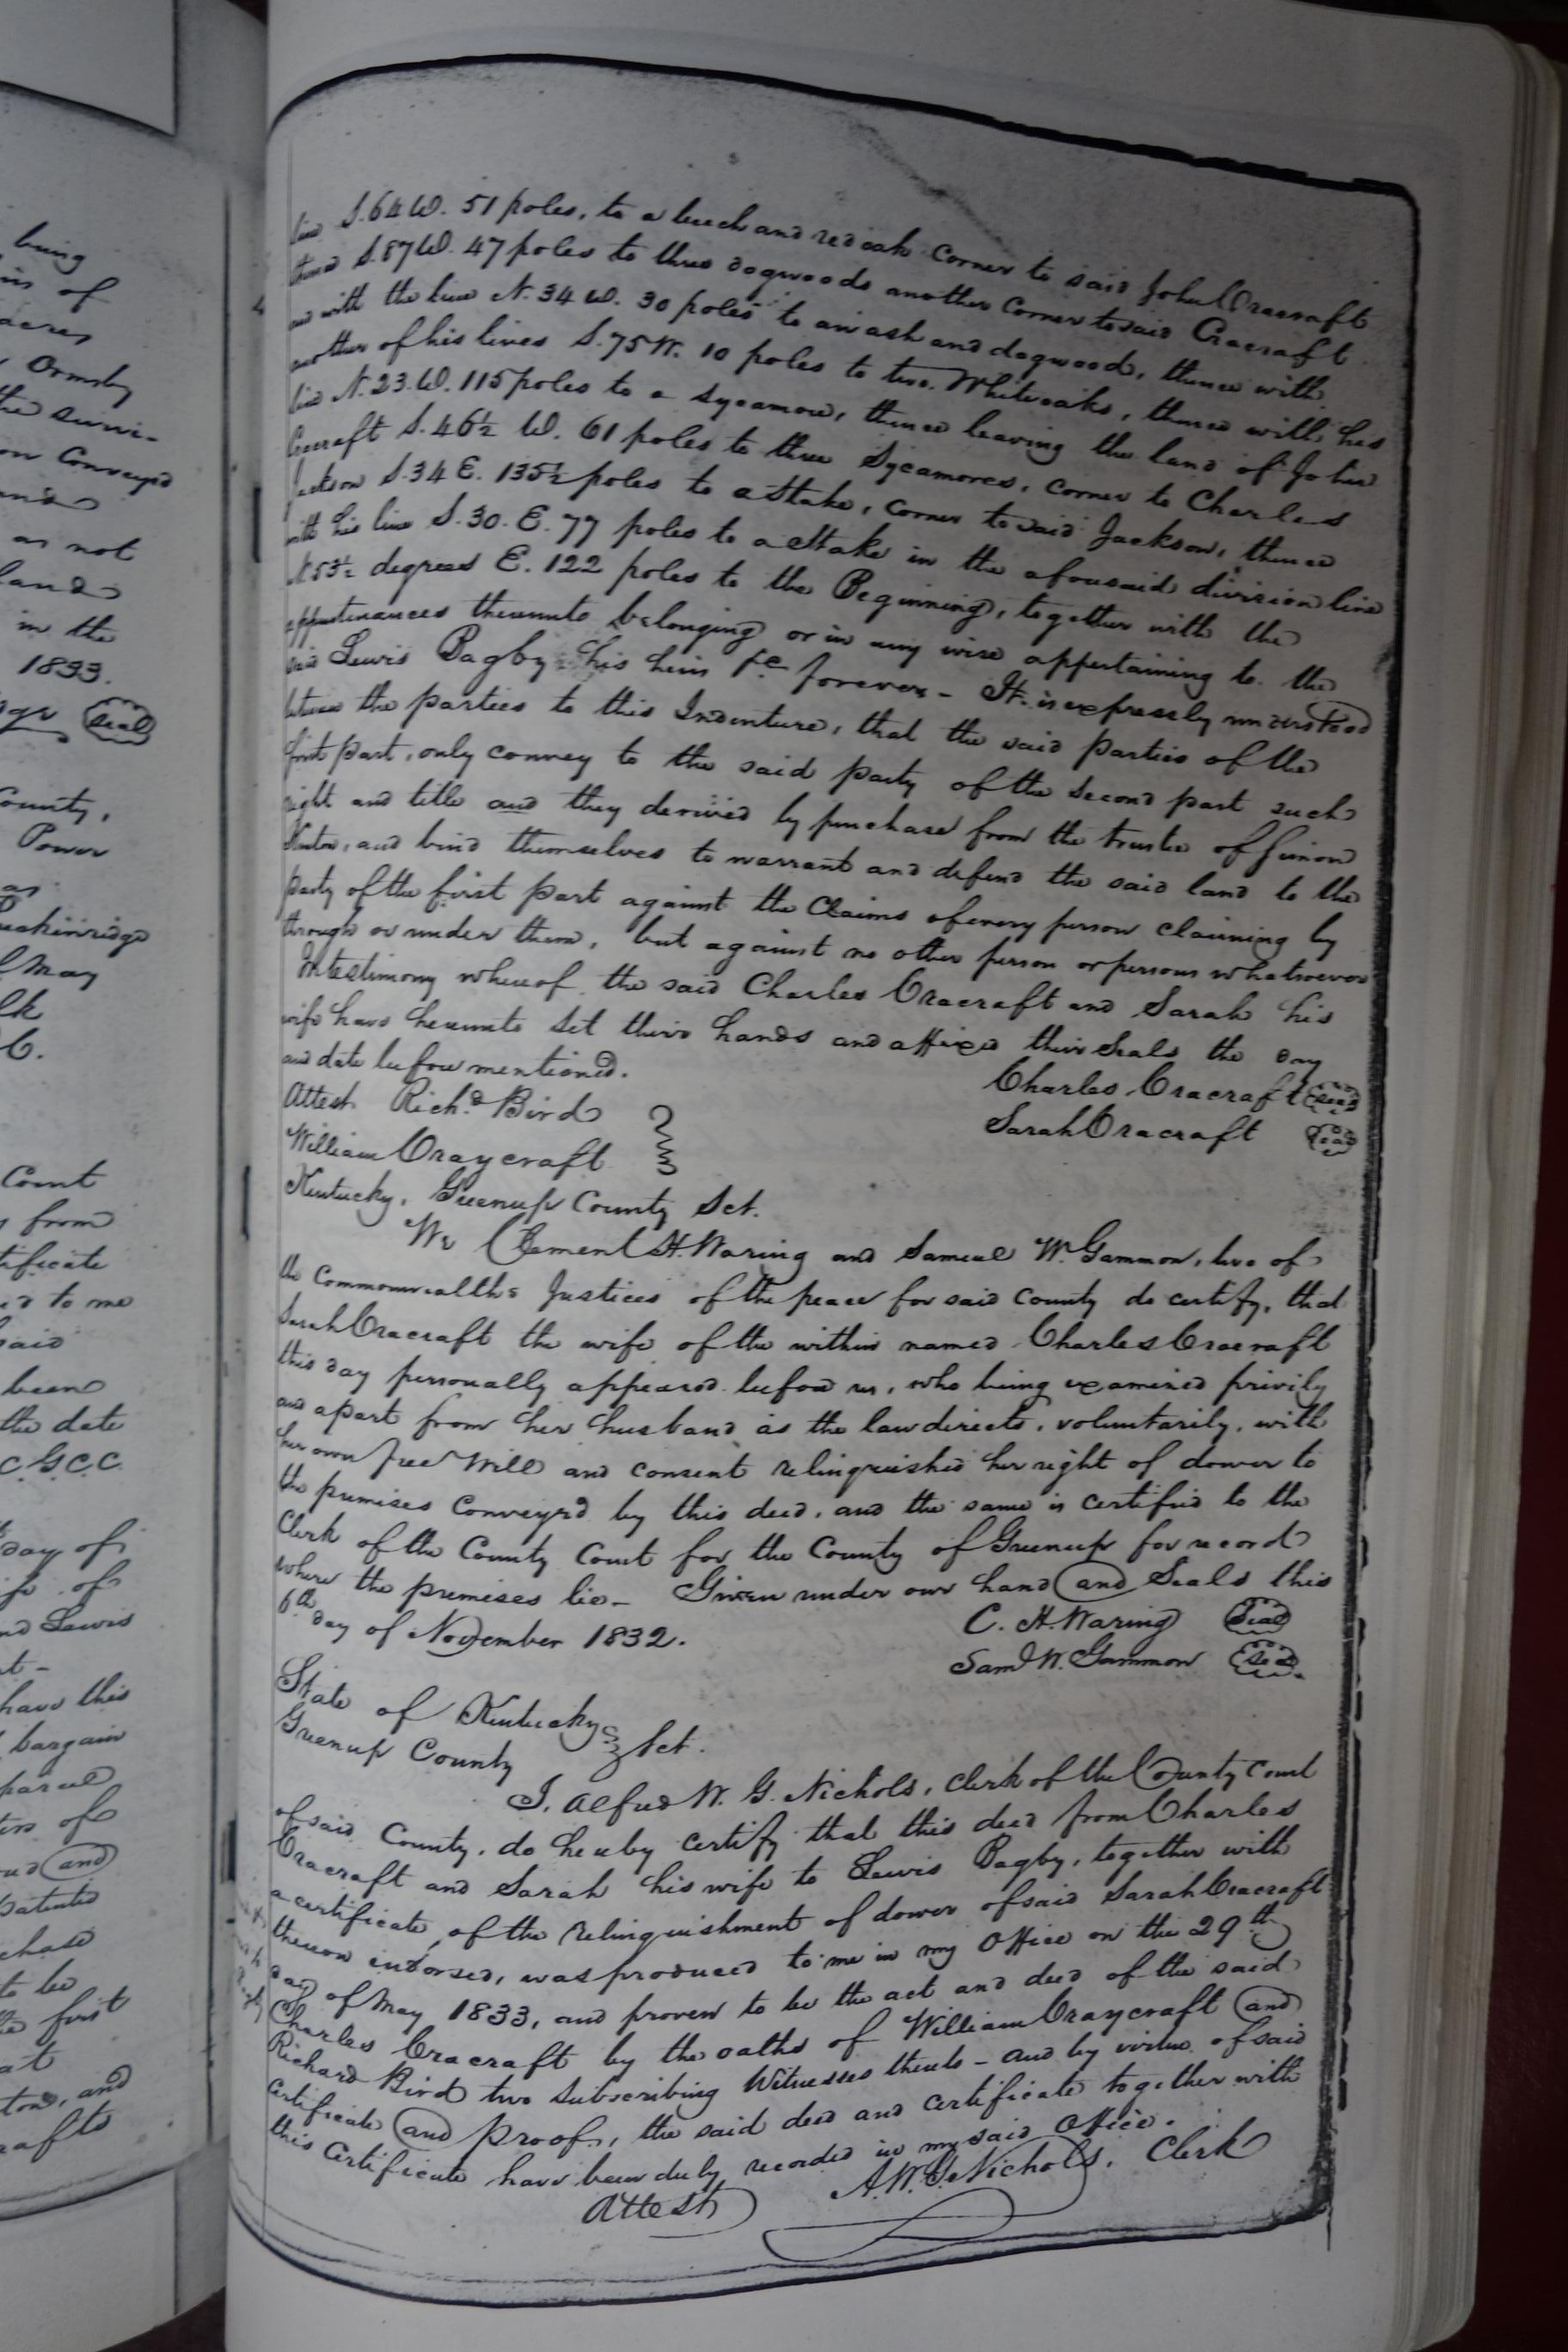 being
of
acres
Ormsby
the survi-
on Conveyd
and
as not
land
in the
1833.
Seal
County,
Power
as
Breckinridge
May
Clk
C.
Court
from
tificate
id to me
said
been
the date
C. G. C. C.
day of
of
and Lewis
t-
have this
bargain
parcel
of
and
patented
chase
to be
the first
at
ton, and
crafts
line S. 64 W. 51 poles, to a beech and red oak corner to said John Cracraft
thence S. 87 W. 47 poles to three dogwoods another corner to said Cracraft
and with the line N. 34 W. 30 poles to an ash and dogwood, thence with
another of his lines S. 75 W. 10 poles to two Whiteoaks, thence with his
line N. 23. W. 115 poles to a Sycamore, thence leaving the land of John
Cracraft S. 46½ W. 61 poles to three Sycamores, corner to Charles
Jackson S. 34 E. 135½ poles to a Stake, corner to said Jackson, thence
with his line S. 30. E. 77 poles to a Stake in the aforesaid division line
N. 53½ degrees E. 122 poles to the Beginning, together with the
appurtenances thereunto belonging or in any wise appertaining to the
said Lewis Bagby his heirs &c forever - It is expressly understood
between the parties to this Indenture, that the said parties of the
first part, only convey to the said party of the Second part such
right and title and they derived by purchase from the trustee of Simon
Kenton, and bind themselves to warrant and defend the said land to the
party of the first part against the Claims of every person claiming by
through or under them, but against no other person or persons whatsoever
In testimony whereof the said Charles Cracraft and Sarah his
wife have hereunto set their hands and affixed their Seals the day
and date before mentioned.
Charles Cracraft Seal
Attest Richd. Bird
Sarah Cracraft Seal
William Craycraft
Kentucky, Greenup County Sct.
We Clement H. Waring and Samuel W. Gammon, two of
the Commonwealths Justices of the peace for said County do certify, that
Sarah Cracraft the wife of the within named Charles Cracraft
this day personally appeared before us, who being examined privily
and apart from her husband as the law directs, voluntarily, with
her own free Will and consent relinquished her right of dower to
the premises Conveyed by this deed, and the same is certified to the
Clerk of the County Court for the County of Greenup for record
where the premises lie - Given under our hand and Seals this
6th day of November 1832.
C. H. Waring Seal
Saml W. Gammon Seal
State of Kentucky
Greenup County Sct.
I, Alfred W. G. Nichols, Clerk of the County Court
of said County, do hereby certify that this deed from Charles
Cracraft and Sarah his wife to Lewis Bagby, together with
a certificate of the relinquishment of dower of said Sarah Cracraft
thereon endorsed, was produced to me in my Office on the 29th
day of May 1833, and proven to be the act and deed of the said
Charles Cracraft by the oaths of William Craycraft and
Richard Bird two Subscribing Witnesses thereto - and by virtue of said
Certificate and Proof, the said deed and certificate together with
this Certificate have been duly recorded in my said Office.
Attest A. W. G. Nichols, Clerk